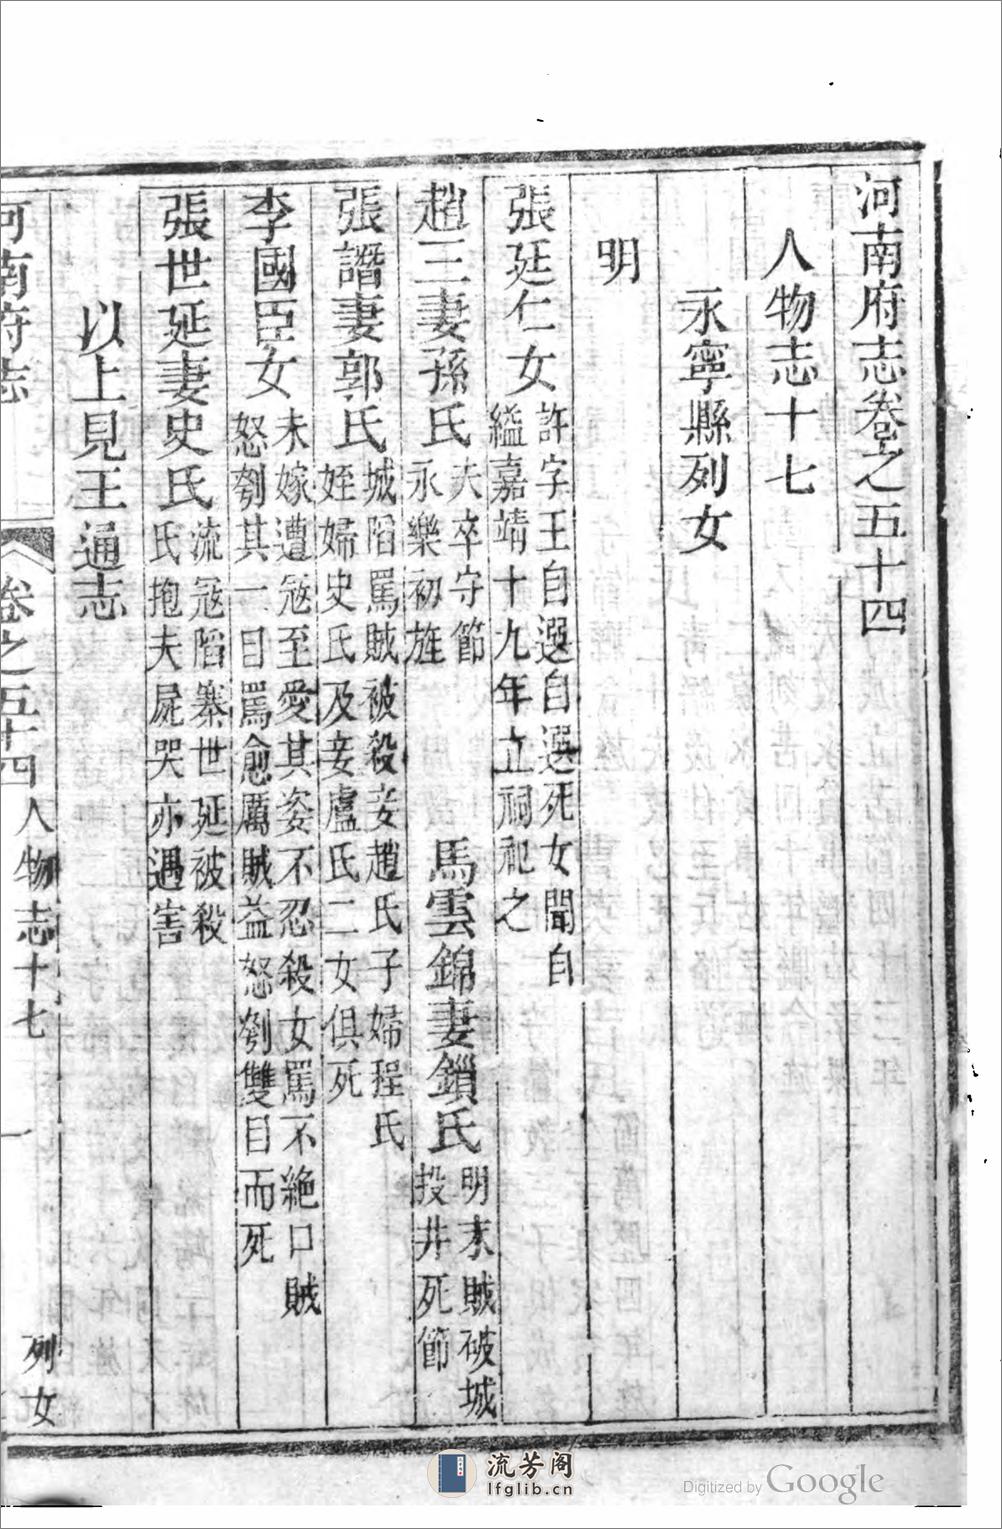 河南府志卷之五十四
人物志十七
永寧縣列女
明
張廷仁女
許字王自選自選死女聞自
縊嘉靖十九年立祠祀之
趙三妻孫氏
夫卒守節
永樂初旌
馬雲錦妻鎖氏
明末賊破城
投井死節
張譖妻郭氏
城陷罵賊被殺妾趙氏子婦程氏
姪婦史氏及妾盧氏二女俱死
李國臣女
未嫁遭寇至愛其姿不忍殺女罵不絶口賊
怒刳其一目罵愈厲賊益怒刳雙目而死
張世延妻史氏
流寇陷寨世延被殺
氏抱夫屍哭亦遇害
以上見王通志
河南府志
卷之五十四
人物志十七
一
列女
流芳阁
lfglib.cn
Digitized by Google